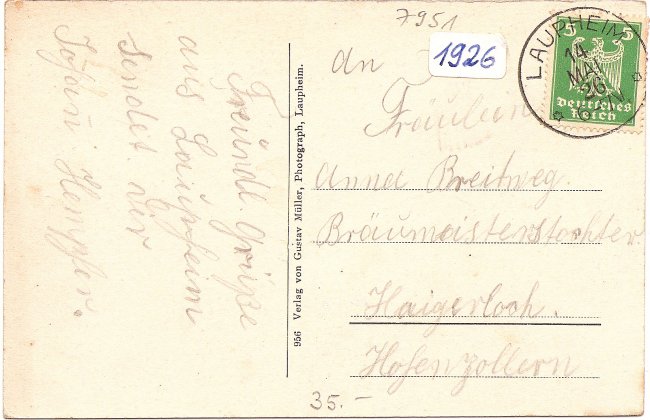 7951
1926
5 5
Deutsches
Reich
LAUPHEIM
14.
MAI
26
Freundl. Grüße
aus Laupheim
sendet dir
Johan
956 Verlag von Gustav Müller, Photograph, Laupheim.
An
Fräulein
Anna Breitweg.
Bräumeisterstochter
Haigerloch.
Hohenzollern
35.-